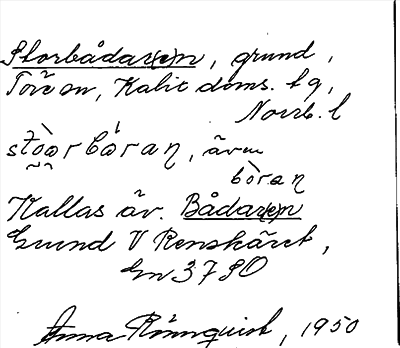 Storbådar(e)n, grund,
Töre sn, Kalix doms. tg,
Norrb. l
även
bòran
Kallas äv. Bådar(e)n
Grund V Renskäret,
Gn 3780
Anna Rönnquist, 1950